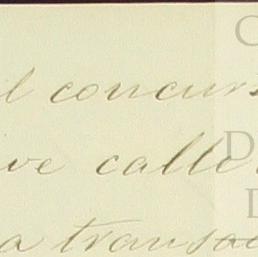 l concurs
ve calle
a transac